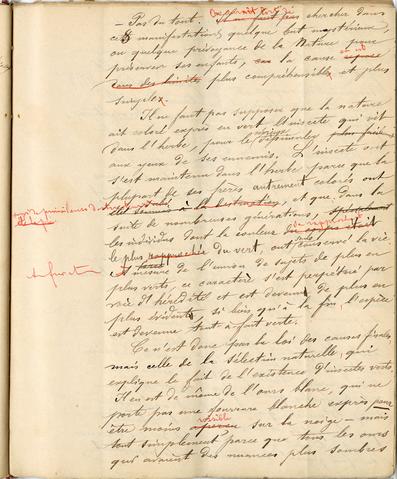 — Pas du tout. On aurait tort de chercher dans
ces manifestations quelque but mystérieux,
ou quelque prévoyance de la Nature pour
préserver ses enfants, car la cause en est
plus compréhensible et plus
simple.
Il ne faut pas supposer que la nature
ait coloré exprès en vert l'insecte qui vit
dans l'herbe, pour le dissimuler
aux yeux de ses ennemis. L'insecte vert
s'est maintenu dans l'herbe parce que la
plupart de ses frères autrement colorés ont
été à la destruction, et que, dans la
suite de nombreuses générations,
les individus dont la couleur se rapprochait
le plus du vert, ont conservé la vie
A mesure de l'union de sujets de plus en
plus verts, ce caractère s'est perpétué par
voie d'hérédité et est devenu de plus en
plus évident, si bien qu'à la fin l'espèce
est devenue tout à fait verte.
Ce n'est donc pas la loi des causes finales
mais celle de la sélection naturelle, qui
explique le fait de l'existence d'insectes verts.
Il en est de même de l'ours blanc, qui ne
porte pas une fourrure blanche exprès pour
être moins visible sur la neige — mais
tout simplement parce que tous les ours
qui avaient des nuances plus sombres